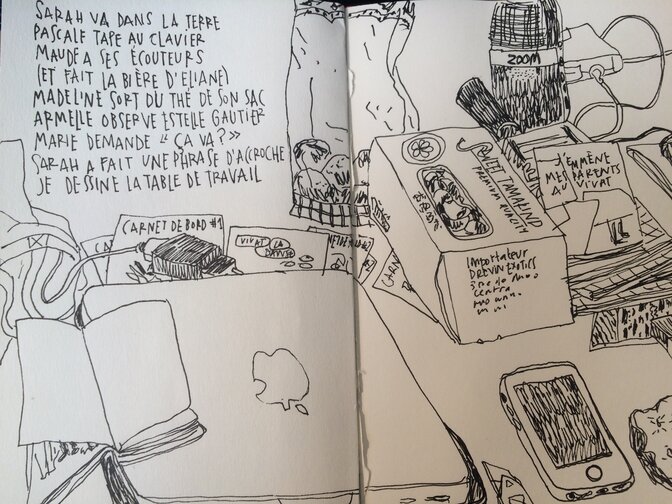 SARAH VA DANS LA TERRE
PASCALE TAPE AU CLAVIER
MAUDE A SES ÉCOUTEURS
(ET FAIT LA BIÈRE D'ELIANE)
MADELINE SORT DU THÉ DE SON SAC
ARMELLE OBSERVE ESTELLE GAUTIER
MARIE DEMANDE « ÇA VA? »
SARAH A FAIT UNE PHRASE D'ACCROCHE
JE DESSINE LA TABLE DE TRAVAIL
CARNET DE BORD #1
VIVAT LA DANSE
ZOOM
SWEET TAMARIND
PREMIUM QUALITY
J'EMMÈNE
MES PARENTS
AU VIVAT
Importateur
EXOTICS